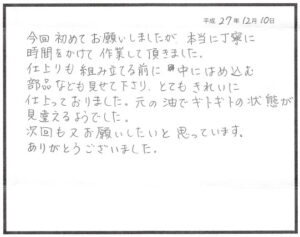 平成27年12月10日
今回初めてお願いしましたが、本当に丁寧に
時間をかけて作業して頂きました。
仕上りも組み立てる前に中にはめ込む
部品なども見せて下さり、とてもきれいに
仕上っておりました。元の油でギトギトの状態が
見違えるようでした。
次回も又お願いしたいと思っています。
ありがとうございました。